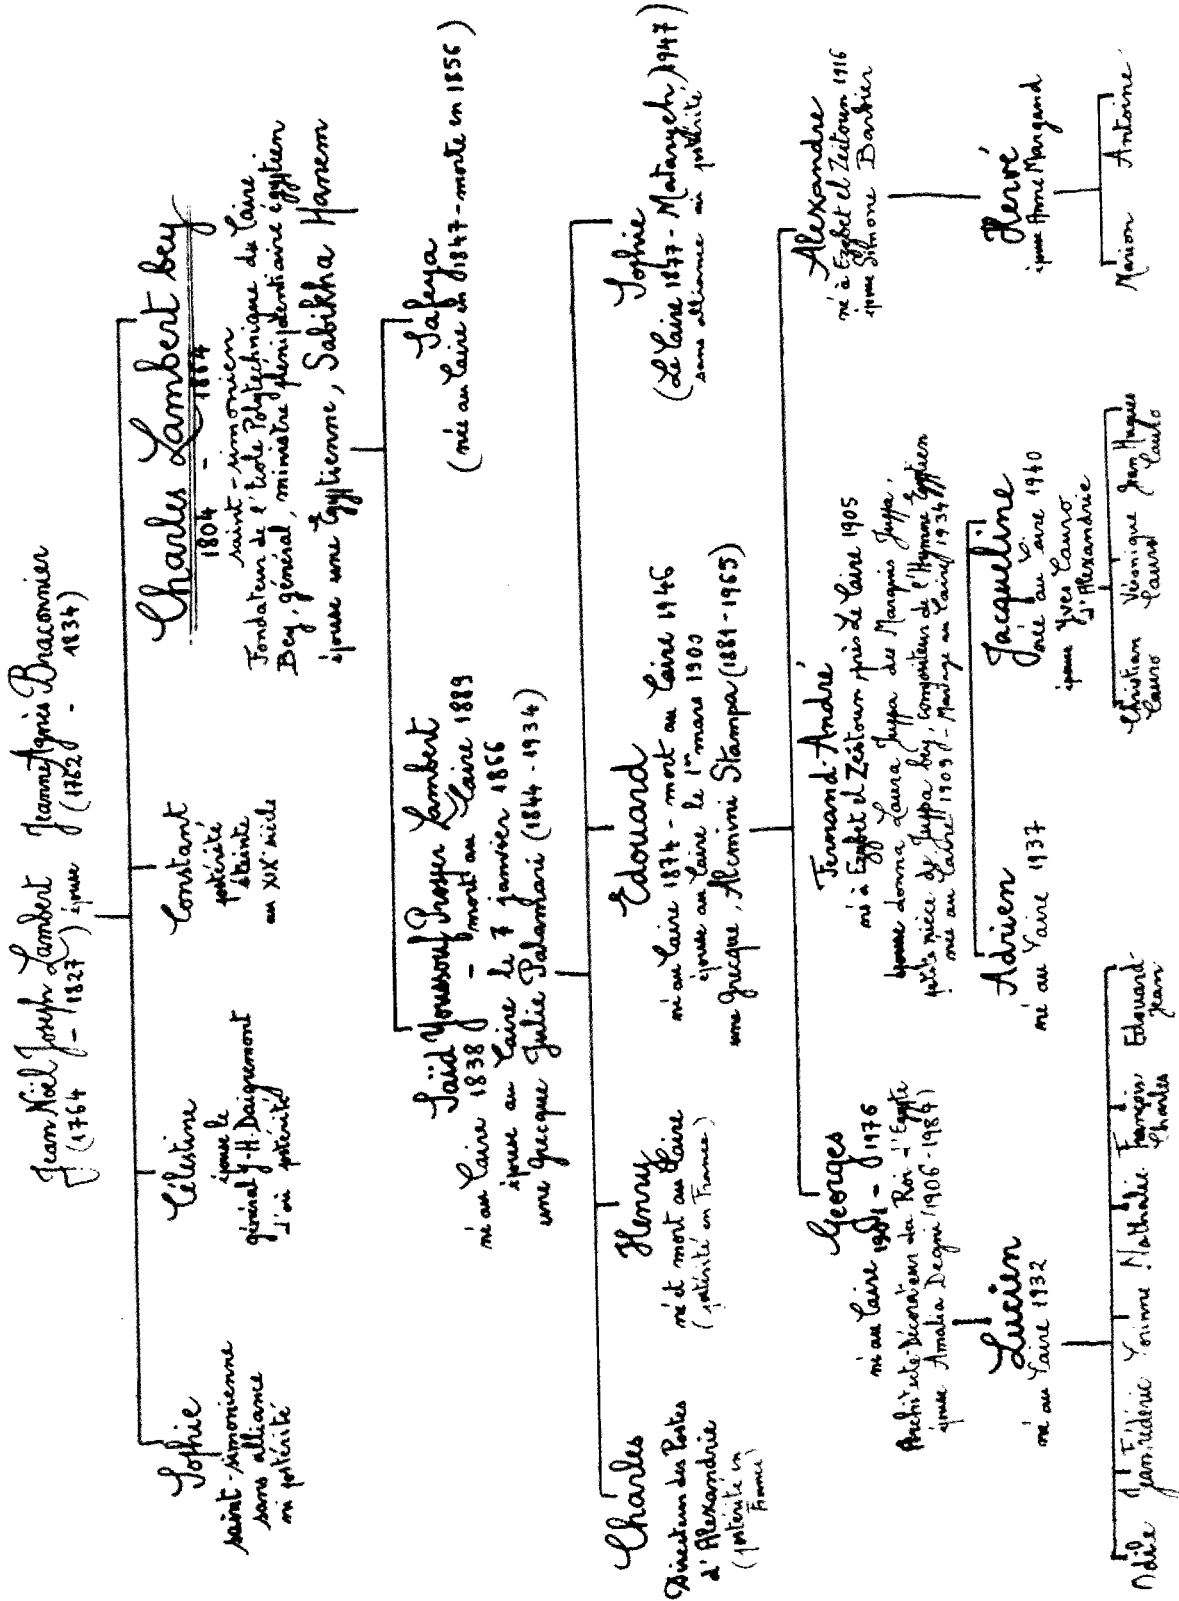 Jean Noël Joseph Lambert épouse Jeanne Agnès Braconnier
(1764 - 1827) (1762 - 1834)
Sophie
saint-simonienne
sans alliance
ni postérité
Célestine
épouse le
général Y-H. Daigremont
d'où postérité
Constant
postérité
éteinte
au XIXe siècle
Charles Lambert bey
1804 - 1864
saint-simonien
Fondateur de l'École Polytechnique du Caire
Bey, général, ministre plénipotentiaire égyptien
épouse une Égyptienne, Sabikha Hanem
Saïd Youssouf Prosper Lambert
né au Caire 1838 - mort au Caire 1889
épouse au Caire le 7 janvier 1866
une grecque Julie Palamari (1844-1934)
Safeya
(née au Caire en 1847 - morte en 1856)
Charles
Directeur des Postes
d'Alexandrie
(postérité en
France)
Henry
né et mort au Caire
(postérité en France)
Edouard
né au Caire 1874 - mort au Caire 1946
épouse au Caire le 1er mars 1900
une Grecque, Alemini Stampa (1881-1965)
Sophie
(Le Caire 1877 - Mataryeh 1947)
sans alliance ni postérité
Georges
né au Caire 1901 - 1976
Architecte-Décorateur du Roi d'Egypte
épouse Amalia Degni (1906-1984)
Fernand-André
né à Ezbet el Zeitoun près Le Caire 1905
épouse donna Laura Juppa des Marquis Juppa,
petite nièce de Juppa bey, compositeur de l'Hymne Egyptien
née au Caire 1909 - Mariage au Caire 1934
Alexandre
né à Ezbet el Zeitoun 1916
épouse Simone Barbier
Lucien
né au Caire 1932
Adrien
né au Caire 1937
Jacqueline
née au Caire 1940
épouse Yves Cauro
d'Alexandrie
Hervé
épouse Anne Margand
Odile Jean Frédéric Corinne Nathalie François Charles Edouard-Jean
Christian Cauro Véronique Cauro Jean Hugues Cauro
Marion Antoine